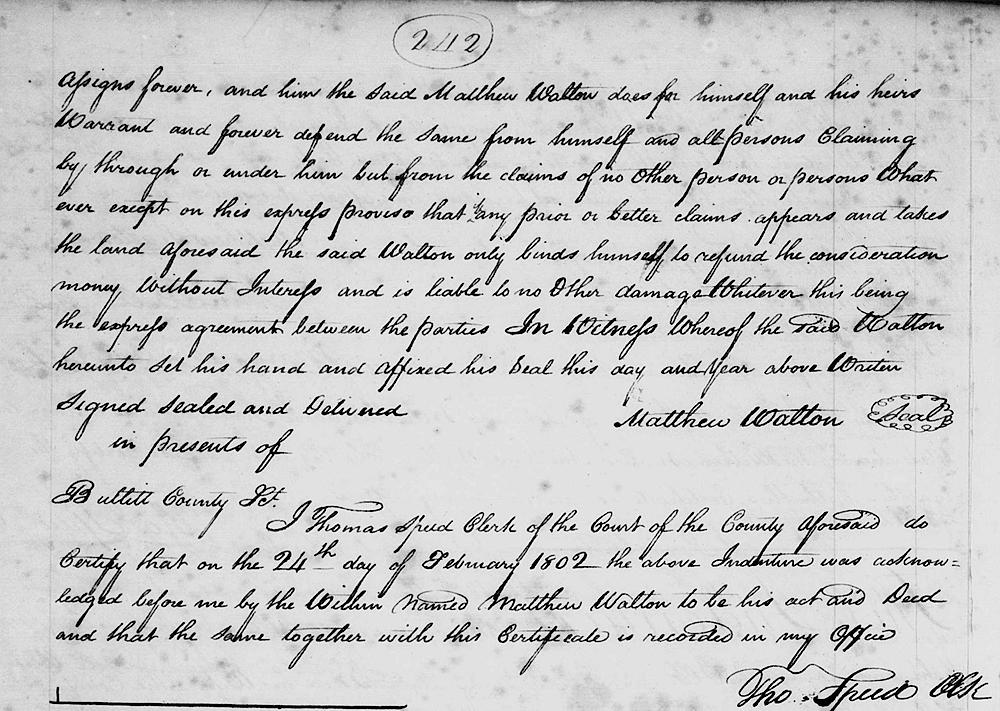 242
assigns forever, and him the said Matthew Walton does for himself and his heirs
Warrant and forever defend the same from himself and all persons Claiming
by, through or under him but from the claims of no Other person or persons What
ever except on this express proviso that if any prior or better claims appears and takes
the land aforesaid the said Walton only binds himself to refund the consideration
money, Without Interess and is liable to no Other damage Whitever this being
the express agreement between the parties In Witness Whereof the said Walton
hereunto set his hand and affixed his Seal this day and year above Writen
Signed Sealed and Delivered
Matthew Walton Seal
in presents of
Bullitt County Sct.
I Thomas Speed Clerk of the Court of the County aforesaid do
Certify that on the 24th day of February 1802 the above Indenture was acknow=
ledged before me by the Within Named Matthew Walton to be his act and Deed
and that the same together with this Certificate is recorded in my Office
Tho. Speed Clk